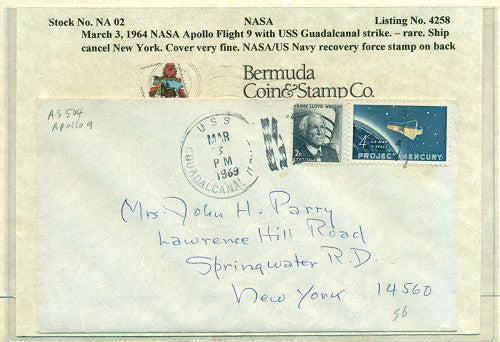 Stock No. NA 02 NASA Listing No. 4258
March 3, 1964 NASA Apollo Flight 9 with USS Guadalcanal strike. – rare. Ship
cancel New York. Cover very fine. NASA/US Navy recovery force stamp on back
Bermuda
Coin&StampCo.
AS504
Apollo 9
USS
MAR
3
PM
1969
GUADALCANAL
FRANK LLOYD WRIGHT
2c
4c
U.S. MAN
IN SPACE
PROJECT MERCURY
Mrs. John H. Parry
Lawrence Hill Road
Springwater R.D.
New York 14560
56